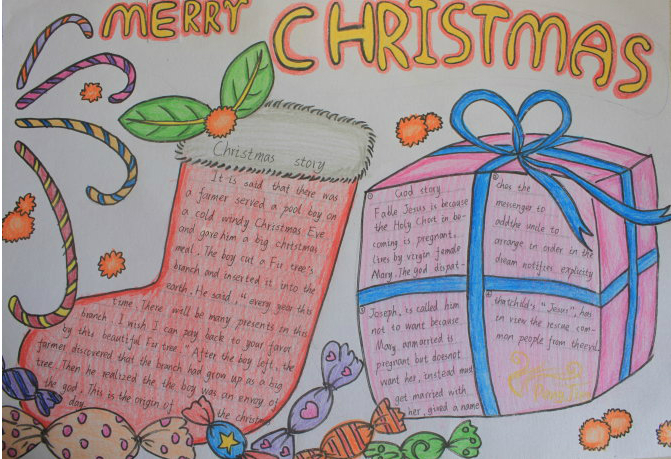 MERRY CHRISTMAS
Christmas story
It is said that there was
a farmer served a pool boy on
a cold windy Christmas Eve
and gave him a big christmas
meal. The boy cut a Fir tree's
branch and inserted it into the
earth. He said, "every year this
time There will be many presents in this
branch, I wish I can pay back to your favor
by this beautiful Fir tree." After the boy left, the
farmer discovered that the branch had grow up as a big
tree. Then he realized the the boy was an envoy of
the god. This is the origin of the christmas
day
① God story
Fatle Jesus is because
the Holy Chost in be-
coming is pregnant,
lires by virgin female
Mary. The god dispat-
② ches the
messenger to
addshe uncle to
arrange in order in the
dream notifies explicity
③ Joseph, is called him
not to want because
Mary unmarried is
pregnant but doesnot
want her, instead and
get married with
her, gived a name
thatchild's "Jesus", has
in view the rescue com-
mon people from theevil